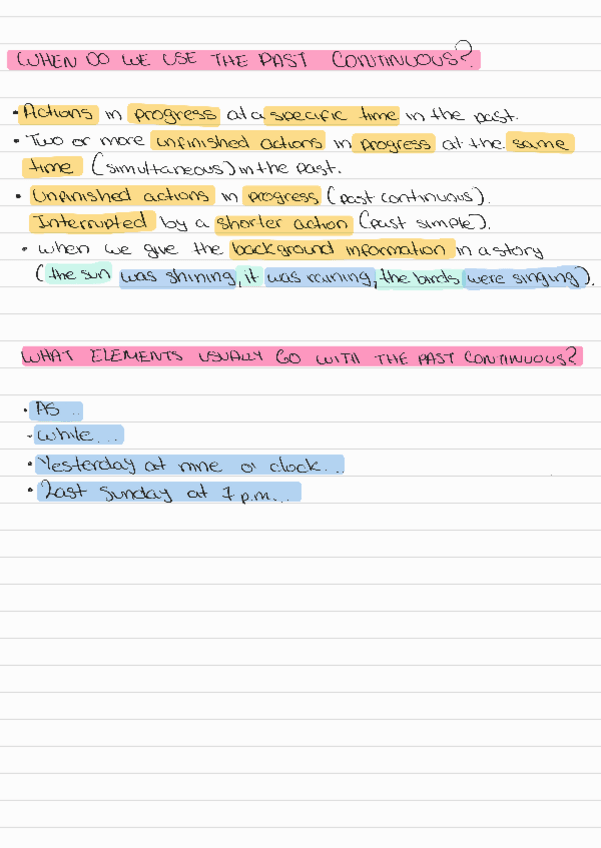 WHEN DO WE USE THE PAST CONTINUOUS?
• Actions in progress at a specific time in the past.
• Two or more unfinished actions in progress at the same
time (simultaneous) in the past.
• Unfinished actions in progress (past continuous).
Interrupted by a shorter action (past simple).
• when we give the background information in a story
(the sun was shining, it was raining, the birds were singing).
WHAT ELEMENTS USUALLY GO WITH THE PAST CONTINUOUS?
• AS ..
- while...
• Yesterday at nine o' clock...
• Last Sunday at 7 p.m...